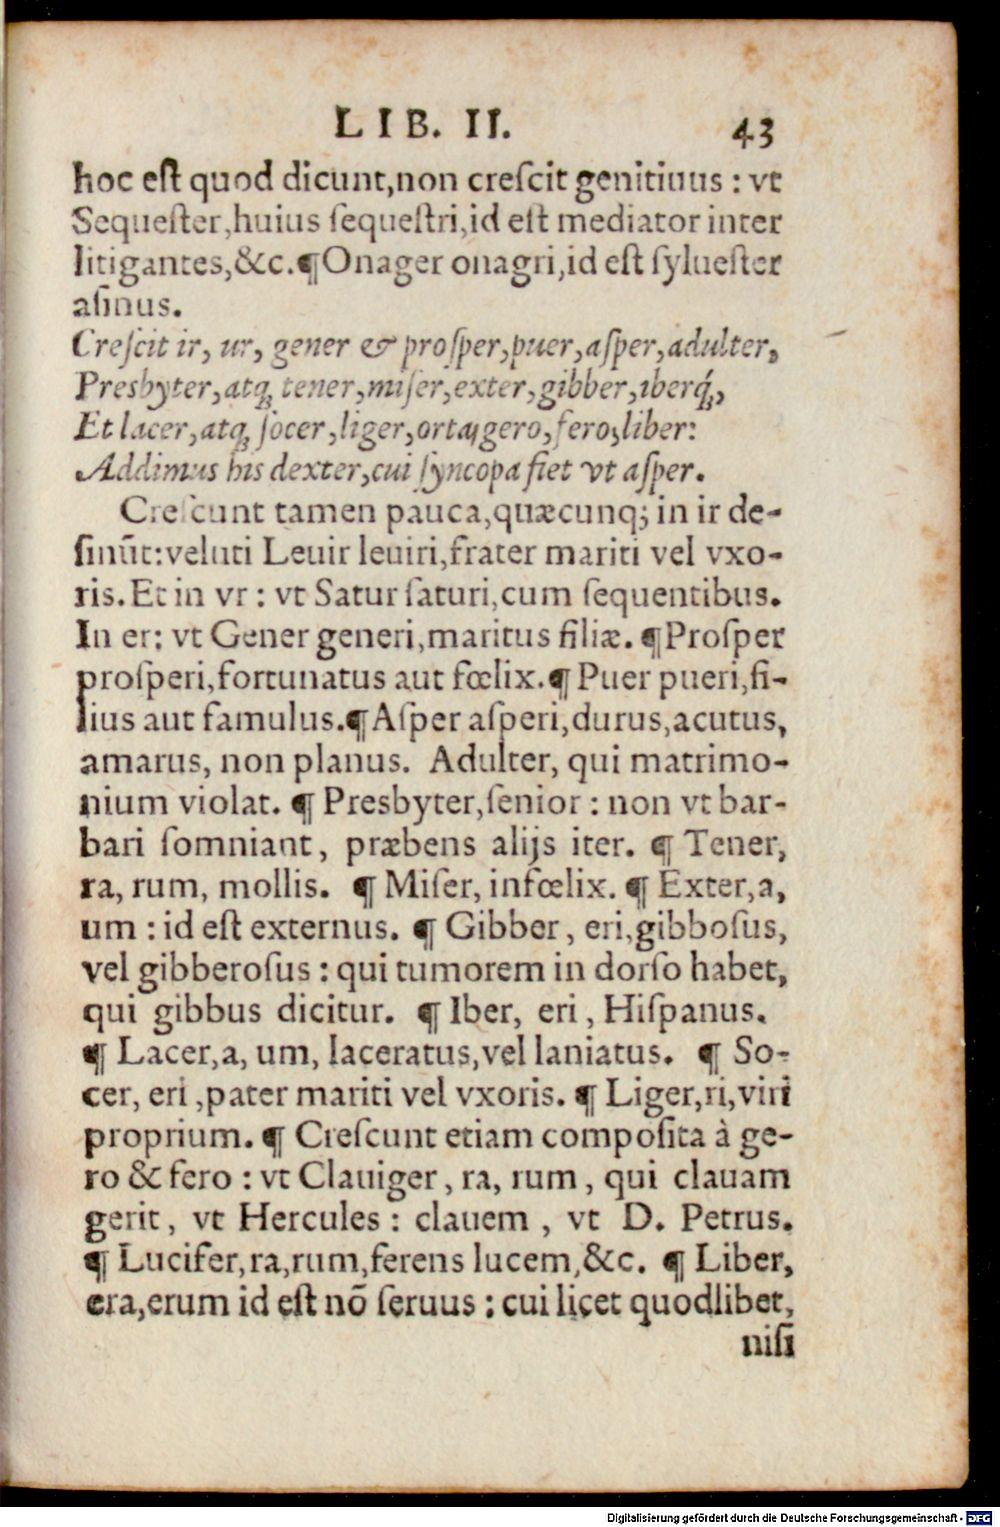 LIB. II. 43
hoc eſt quod dicunt,non creſcit genitiuus : vt
Sequeſter,huius ſequeſtri,id eſt mediator inter
litigantes,&c.¶Onager onagri,id eſt ſylueſter
aſinus.
Creſcit ir, ur, gener & proſper,puer,aſper,adulter,
Presbyter,atq; tener,miſer,exter,gibber,iberq́;,
Et lacer,atq; ſocer,liger,ortaq; gero,fero,liber:
Addimus his dexter,cui ſyncopa fiet vt aſper.
Creſcunt tamen pauca,quæcunq; in ir de-
ſinũt:veluti Leuir leuiri,frater mariti vel vxo-
ris.Et in vr : vt Satur ſaturi,cum ſequentibus.
In er: vt Gener generi,maritus filiæ. ¶Proſper
proſperi,fortunatus aut fœlix.¶ Puer pueri,fi-
lius aut famulus.¶Aſper aſperi,durus,acutus,
amarus, non planus. Adulter, qui matrimo-
nium violat. ¶ Presbyter,ſenior : non vt bar-
bari ſomniant, præbens alijs iter. ¶ Tener,
ra, rum, mollis. ¶ Miſer, infœlix. ¶ Exter,a,
um : id eſt externus. ¶ Gibber, eri,gibboſus,
vel gibberoſus : qui tumorem in dorſo habet,
qui gibbus dicitur. ¶ Iber, eri, Hiſpanus.
¶ Lacer,a, um, laceratus,vel laniatus. ¶ So-
cer, eri ,pater mariti vel vxoris. ¶ Liger,ri,viri
proprium. ¶ Creſcunt etiam compoſita à ge-
ro & fero : vt Clauiger, ra, rum, qui clauam
gerit, vt Hercules : clauem, vt D. Petrus.
¶ Lucifer,ra,rum,ferens lucem,&c. ¶ Liber,
era,erum id eſt nõ ſeruus : cui licet quodlibet,
niſi
Digitalisierung gefördert durch die Deutsche Forschungsgemeinschaft - DFG